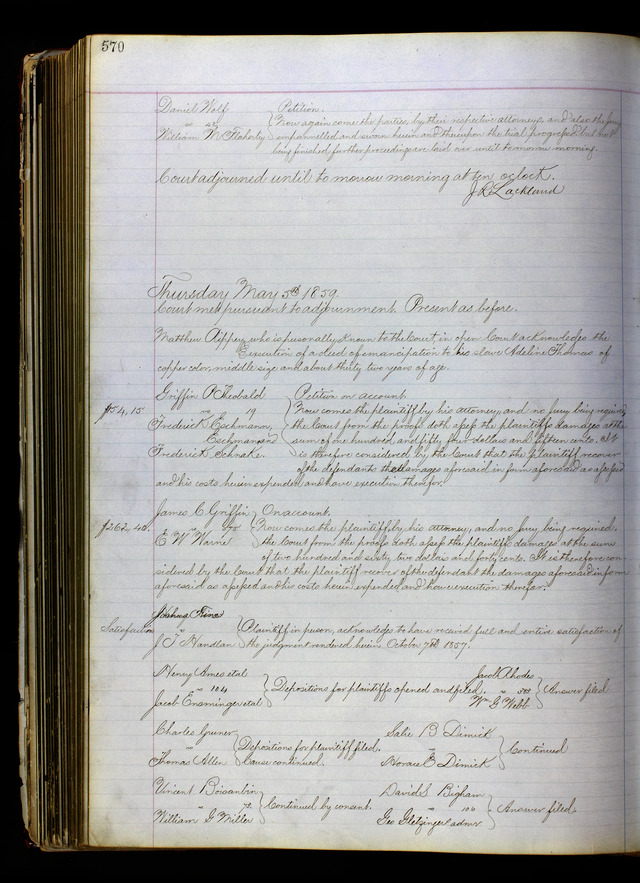 570
Daniel Wolf } Petition.
vs } Now again come the parties, by their respective attorneys, and also the jury
William M Flaherty } empannelled and sworn herein and thereupon the trial progressed but not
being finished further proceedings are laid over until to morrow morning.
Court adjourned until to morrow morning at ten oclock.
J R Lackland
Thursday May 5th 1859.
Court met pursuant to adjournment. Present as before.
Matthew Rippey, who is personally known to the Court, in open Court acknowledges the
Execution of a deed of emancipation to his slave Adeline Thomas of
copper color, middle size and about thirty two years of age.
Griffin & Theobald } Petition on account.
$154,15. vs 19 } Now comes the plaintiff by his attorney, and no jury being required
Frederick Eschmann, } the Court from the proofs doth assess the plaintiffs damages at the
Eschmann and } sum of one hundred and fifty four dollars and fifteen cents. It
Frederick Schnake. } is therefore considered by the Court that the plaintiff recover
of the defendants the damages aforesaid in form aforesaid as assessed
and his costs herein expended and have execution therefor.
James C Griffin } On account.
$262,40. vs } Now comes the plaintiff by his attorney, and no jury being required.
E W Warne } the Court from the proofs doth assess the plaintiffs damages at the sum
of two hundred and sixty two dollars and forty cents. It is therefore con-
sidered by the Court that the plaintiff recover of the defendant the damages aforesaid in form
aforesaid as assessed and his costs herein expended and have execution therefor.
Satisfaction } Plaintiff in person, acknowledges to have received full and entire satisfaction of
J T Handlan } the judgment rendered herein October 7th 1857.
Henry Ames etal
vs 104 } Depositions for plaintiffs opened and filed.
Jacob Ensminger etal
Jacob Rhodes
vs 383 } Answer filed
Wm G Webb
Charles Gruner
vs } Depositions for plaintiff filed.
Thomas Allen } Cause continued.
Salie B Dimick
vs } Continued
Horace E Dimick
Vincent Boisaubin
vs 72 } Continued by consent.
William G Miller
David S Bigham
vs 106 } Answer filed.
Geo admr